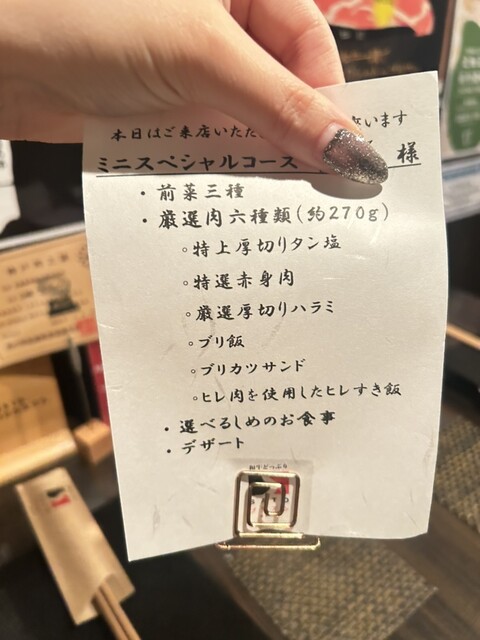 本日はご来店いただ います
ミニスペシャルコース 様
・前菜三種
・厳選肉六種類(約270g)
。特上厚切りタン塩
。特選赤身肉
。厳選厚切りハラミ
。ブリ飯
。ブリカツサンド
。ヒレ肉を使用したヒレすき飯
・選べるしめのお食事
・デザート